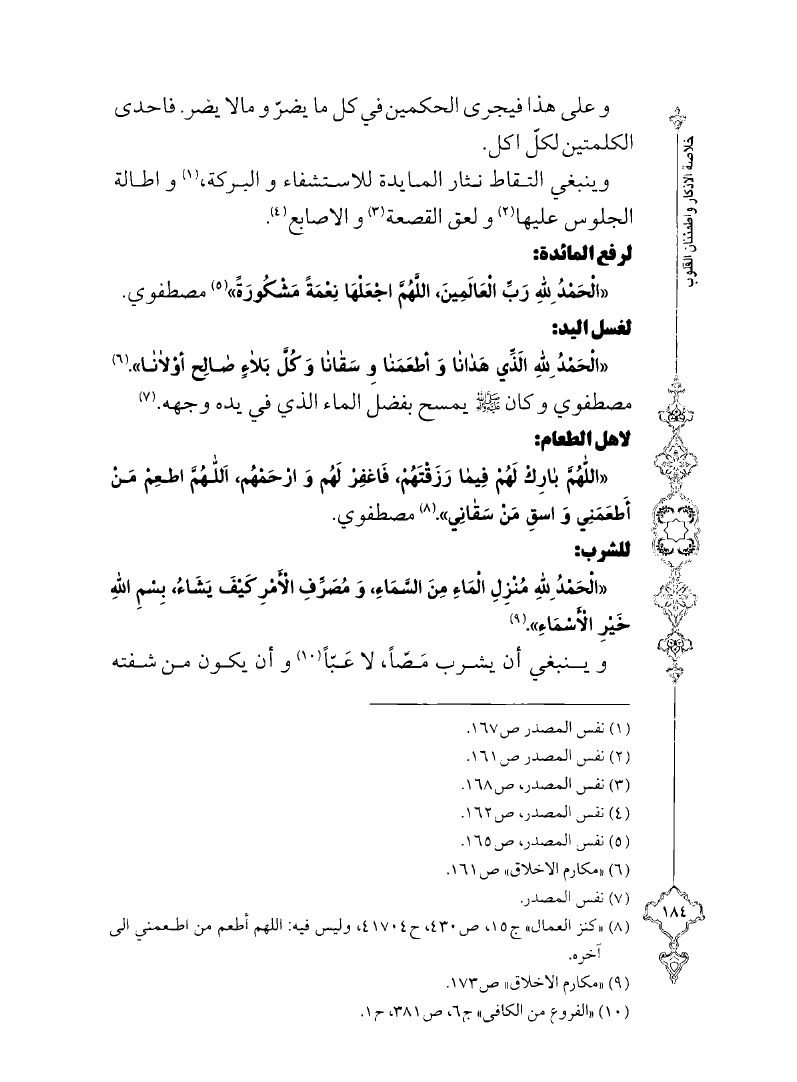 و على هذا فيجرى الحكمين في كل ما يضرّ و مالا يضر. فاحدى
الكلمتين لكلّ اكل.
وينبغي التـقاط نـثار المـايدة للاسـتشفاء و البـركة،(١) و اطـالة
الجلوس عليها(٢) و لعق القصعة(٣) و الاصابع(٤).
لرفع المائدة:
«الْحَمْدُ لِلّهِ رَبِّ الْعَالَمِينَ، اللَّهُمَّ اجْعَلْهَا نِعْمَةً مَشْكُورَةً»(٥) مصطفوي.
لغسل اليد:
«الْحَمْدُ لِلّهِ الَّذِّي هَدٰانٰا وَ أَطْعَمَنٰا وِ سَقٰانٰا وَ كُلَّ بَلاٰءٍ صٰـالِحٍ أَوْلاٰنٰـا».(٦)
مصطفوي و كان ﷺ يمسح بفضل الماء الذي في يده وجهه.(٧)
لاهل الطعام:
«اللّٰهُمَّ بٰارِكْ لَهُمْ فِيمٰا رَزَقْتَهُمْ، فَاغْفِرْ لَهُم وَ ارْحَمْهُم، اَللّٰـهُمَّ اطـعِمْ مَـنْ
أَطْعَمَنِي وَ اسقِ مَنْ سَقٰانِي».(٨) مصطفوي.
للشرب:
«الْحَمْدُ لِلّهِ مُنْزِلِ الْمَاءِ مِنَ السَّمَاءِ، وَ مُصَرِّفِ الْأَمْرِ كَيْفَ يَشَاءُ، بِسْمِ اللّٰهِ
خَيْرِ الْأَسْمَاءِ».(٩)
و يـنـبغي أن يشـرب مَـصّاً، لا عَـبّاً(١٠) و أن يكـون مـن شـفته
(١) نفس المصدر ص١٦٧.
(٢) نفس المصدر ص١٦١.
(٣) نفس المصدر، ص١٦٨.
(٤) نفس المصدر، ص١٦٢.
(٥) نفس المصدر، ص١٦٥.
(٦) «مكارم الاخلاق» ص١٦١.
(٧) نفس المصدر.
(٨) «كنز العمال» ج١٥، ص٤٣٠، ح٤١٧٠٤، وليس فيه: اللهم أطعم من اطـعمني الى
آخره.
(٩) «مكارم الاخلاق» ص١٧٣.
(١٠) «الفروع من الكافى» ج٦، ص٣٨١، ح١.
خلاصة الاذكار واطمئنان القلوب
١٨٤